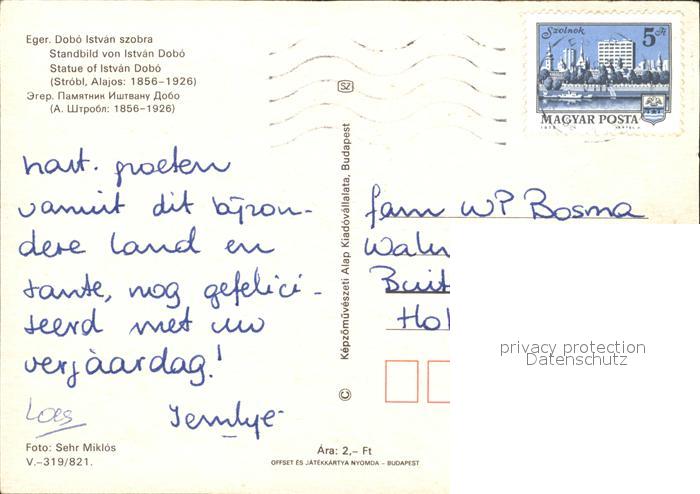 Eger. Dobó István szobra
Standbild von István Dobó
Statue of István Dobó
(Stróbl, Alajos: 1856–1926)
Эгер. Памятник Иштвану Добо
(А. Штробл: 1856–1926)
hart. groeten
vanuit dit bijzon-
dere land en
tante, nog gefelici-
teerd met uw
verjaardag!
Loes
Foto: Sehr Miklós
V.–319/821.
SZ
Képzőművészeti Alap Kiadóvállalata, Budapest
©
Ára: 2,– Ft
OFFSET ÉS JÁTÉKKÁRTYA NYOMDA – BUDAPEST
Szolnok
5 Ft
MAGYAR POSTA
fam WP Bosma
privacy protection
Datenschutz